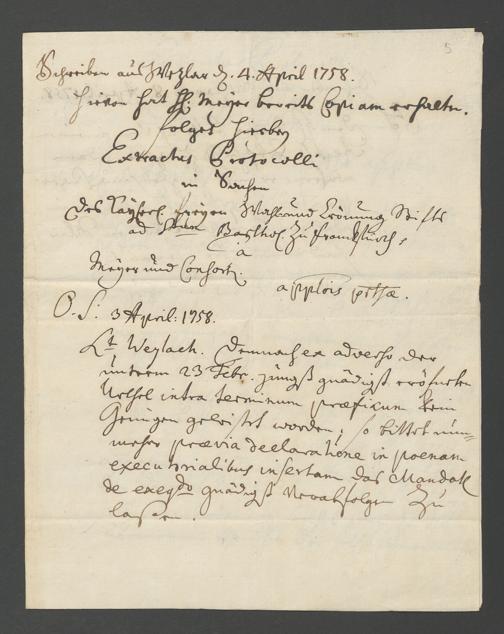 5
Schreiben aus Wezlar d. 4. April 1758.
hievon hat H. Meyer bereits Copiam erhalten.
folget hierbey
Extractus Protocolli
in Sachen
des Kayserl. freyen Wahl und Crönung Stifts
ad Stum Barthol. zu Franckfurth,
a
Meyer und Consort.
applois
O. S. 3 April: 1758.
Lt. Weylach. Demnach ex adverso der
unterm 23 Febr. jüngst gnädigst eröfneten
Urthel intra terminum præfixum kein
Genügen geleistet worden; so bittet nun-
mehr prævia declaratione in poenam
executorialibus insertam das Mandat
de exeqdo gnädigst verabfolgen zu
lassen.